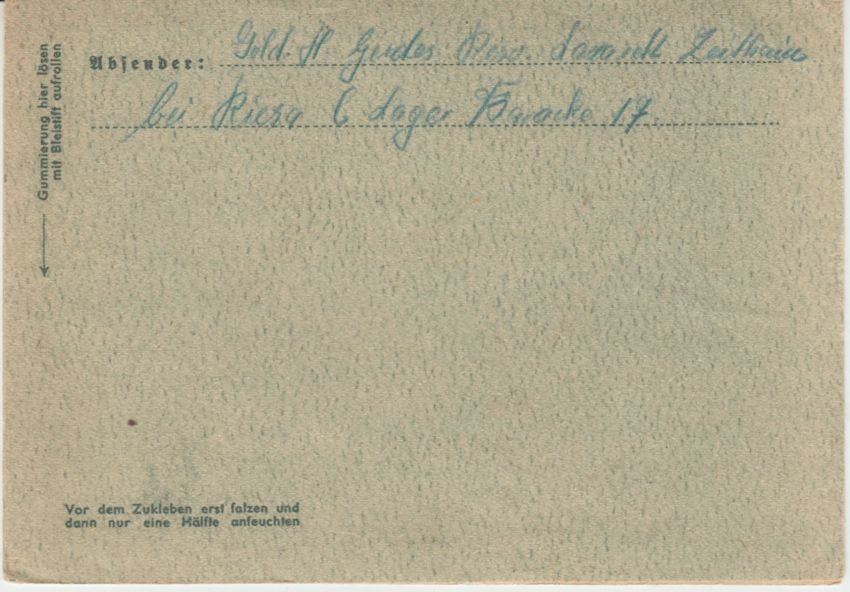 Gummierung hier lösen
mit Bleistift aufrollen
Absender: Sold. H Gerdes Res. Lazarett Zeithain
bei Riesa 6 Lager Baracke 17
Vor dem Zukleben erst falzen und
dann nur eine Hälfte anfeuchten